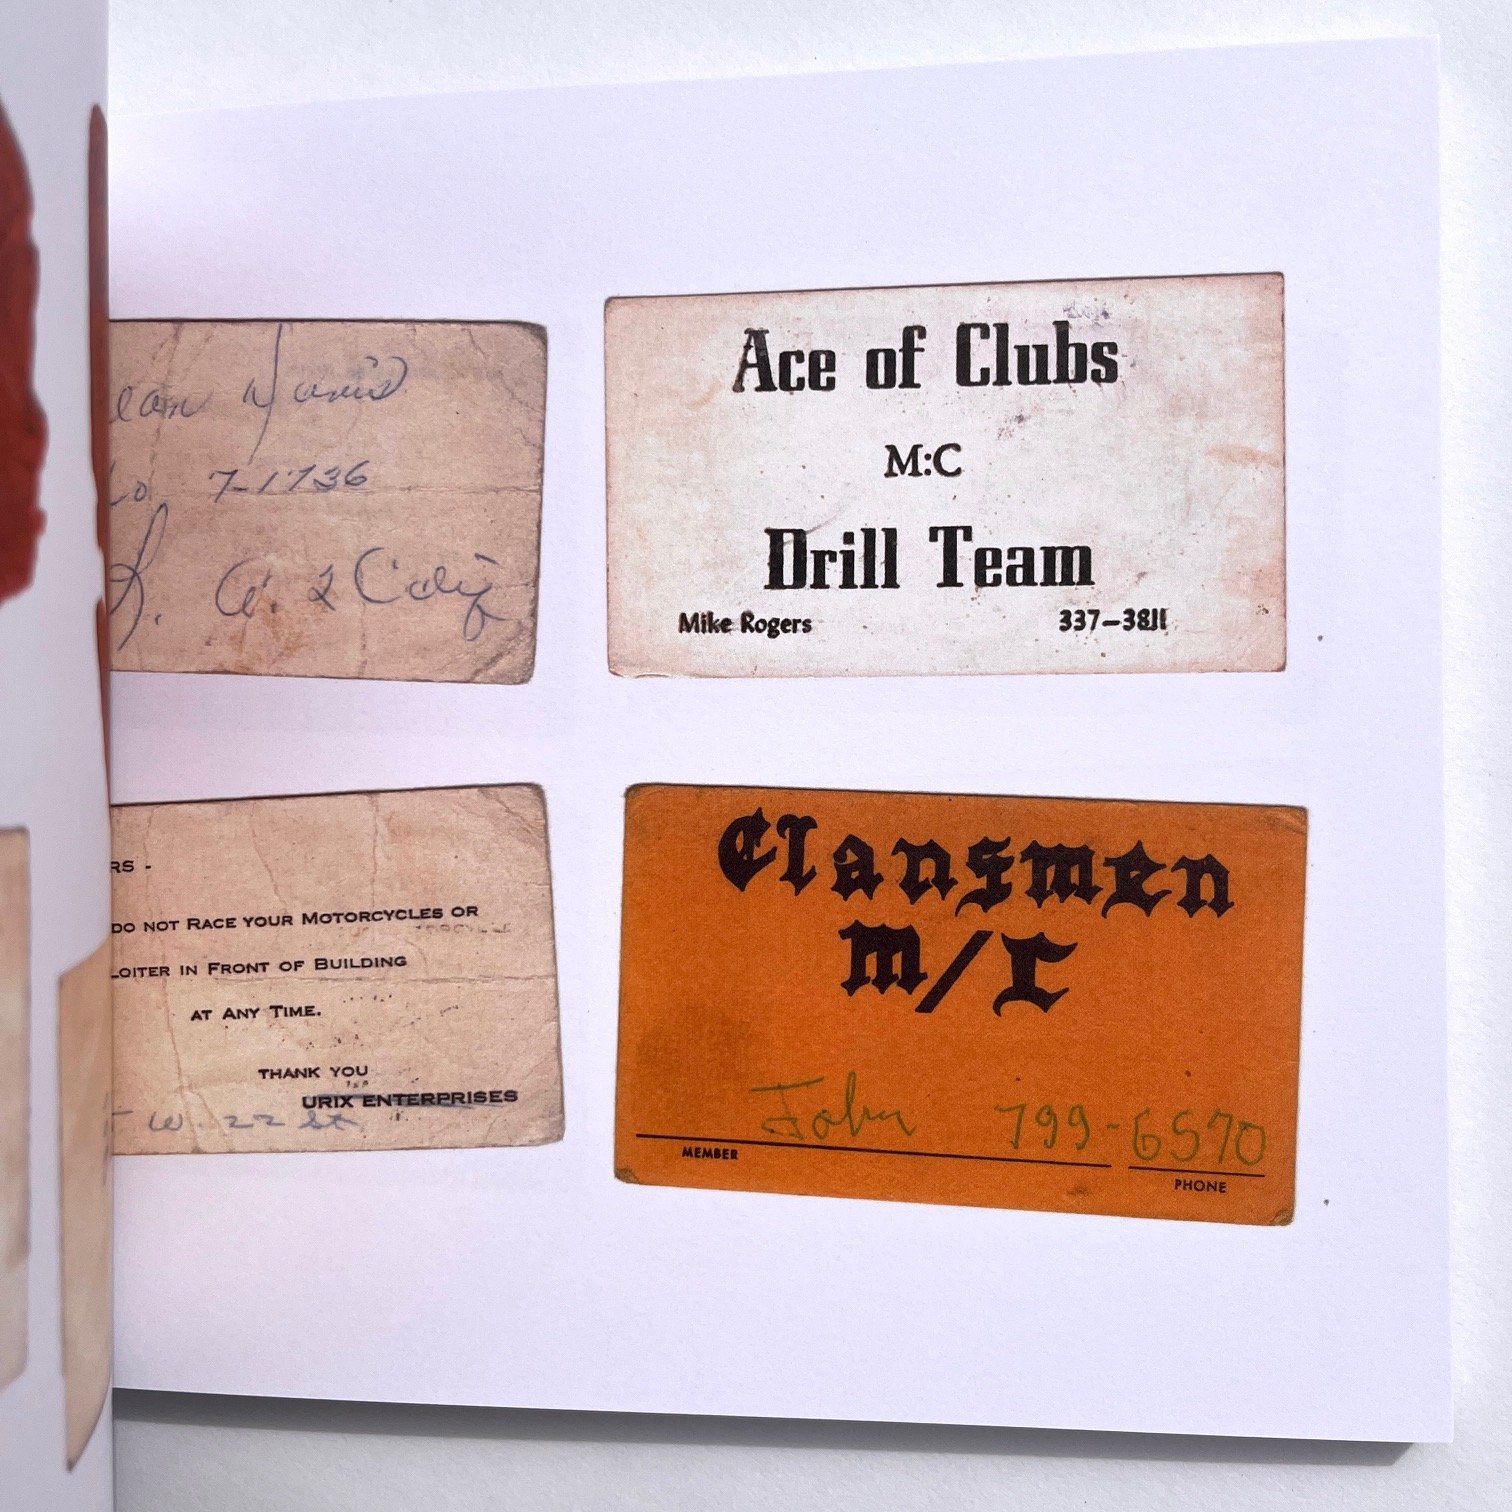 7-1736
Ace of Clubs
M:C
Drill Team
Mike Rogers 337-3811
RS -
DO NOT RACE YOUR MOTORCYCLES OR
LOITER IN FRONT OF BUILDING
AT ANY TIME.
THANK YOU
URIX ENTERPRISES
W. 22 St
Clansmen
M/C
John 799-6570
MEMBER PHONE